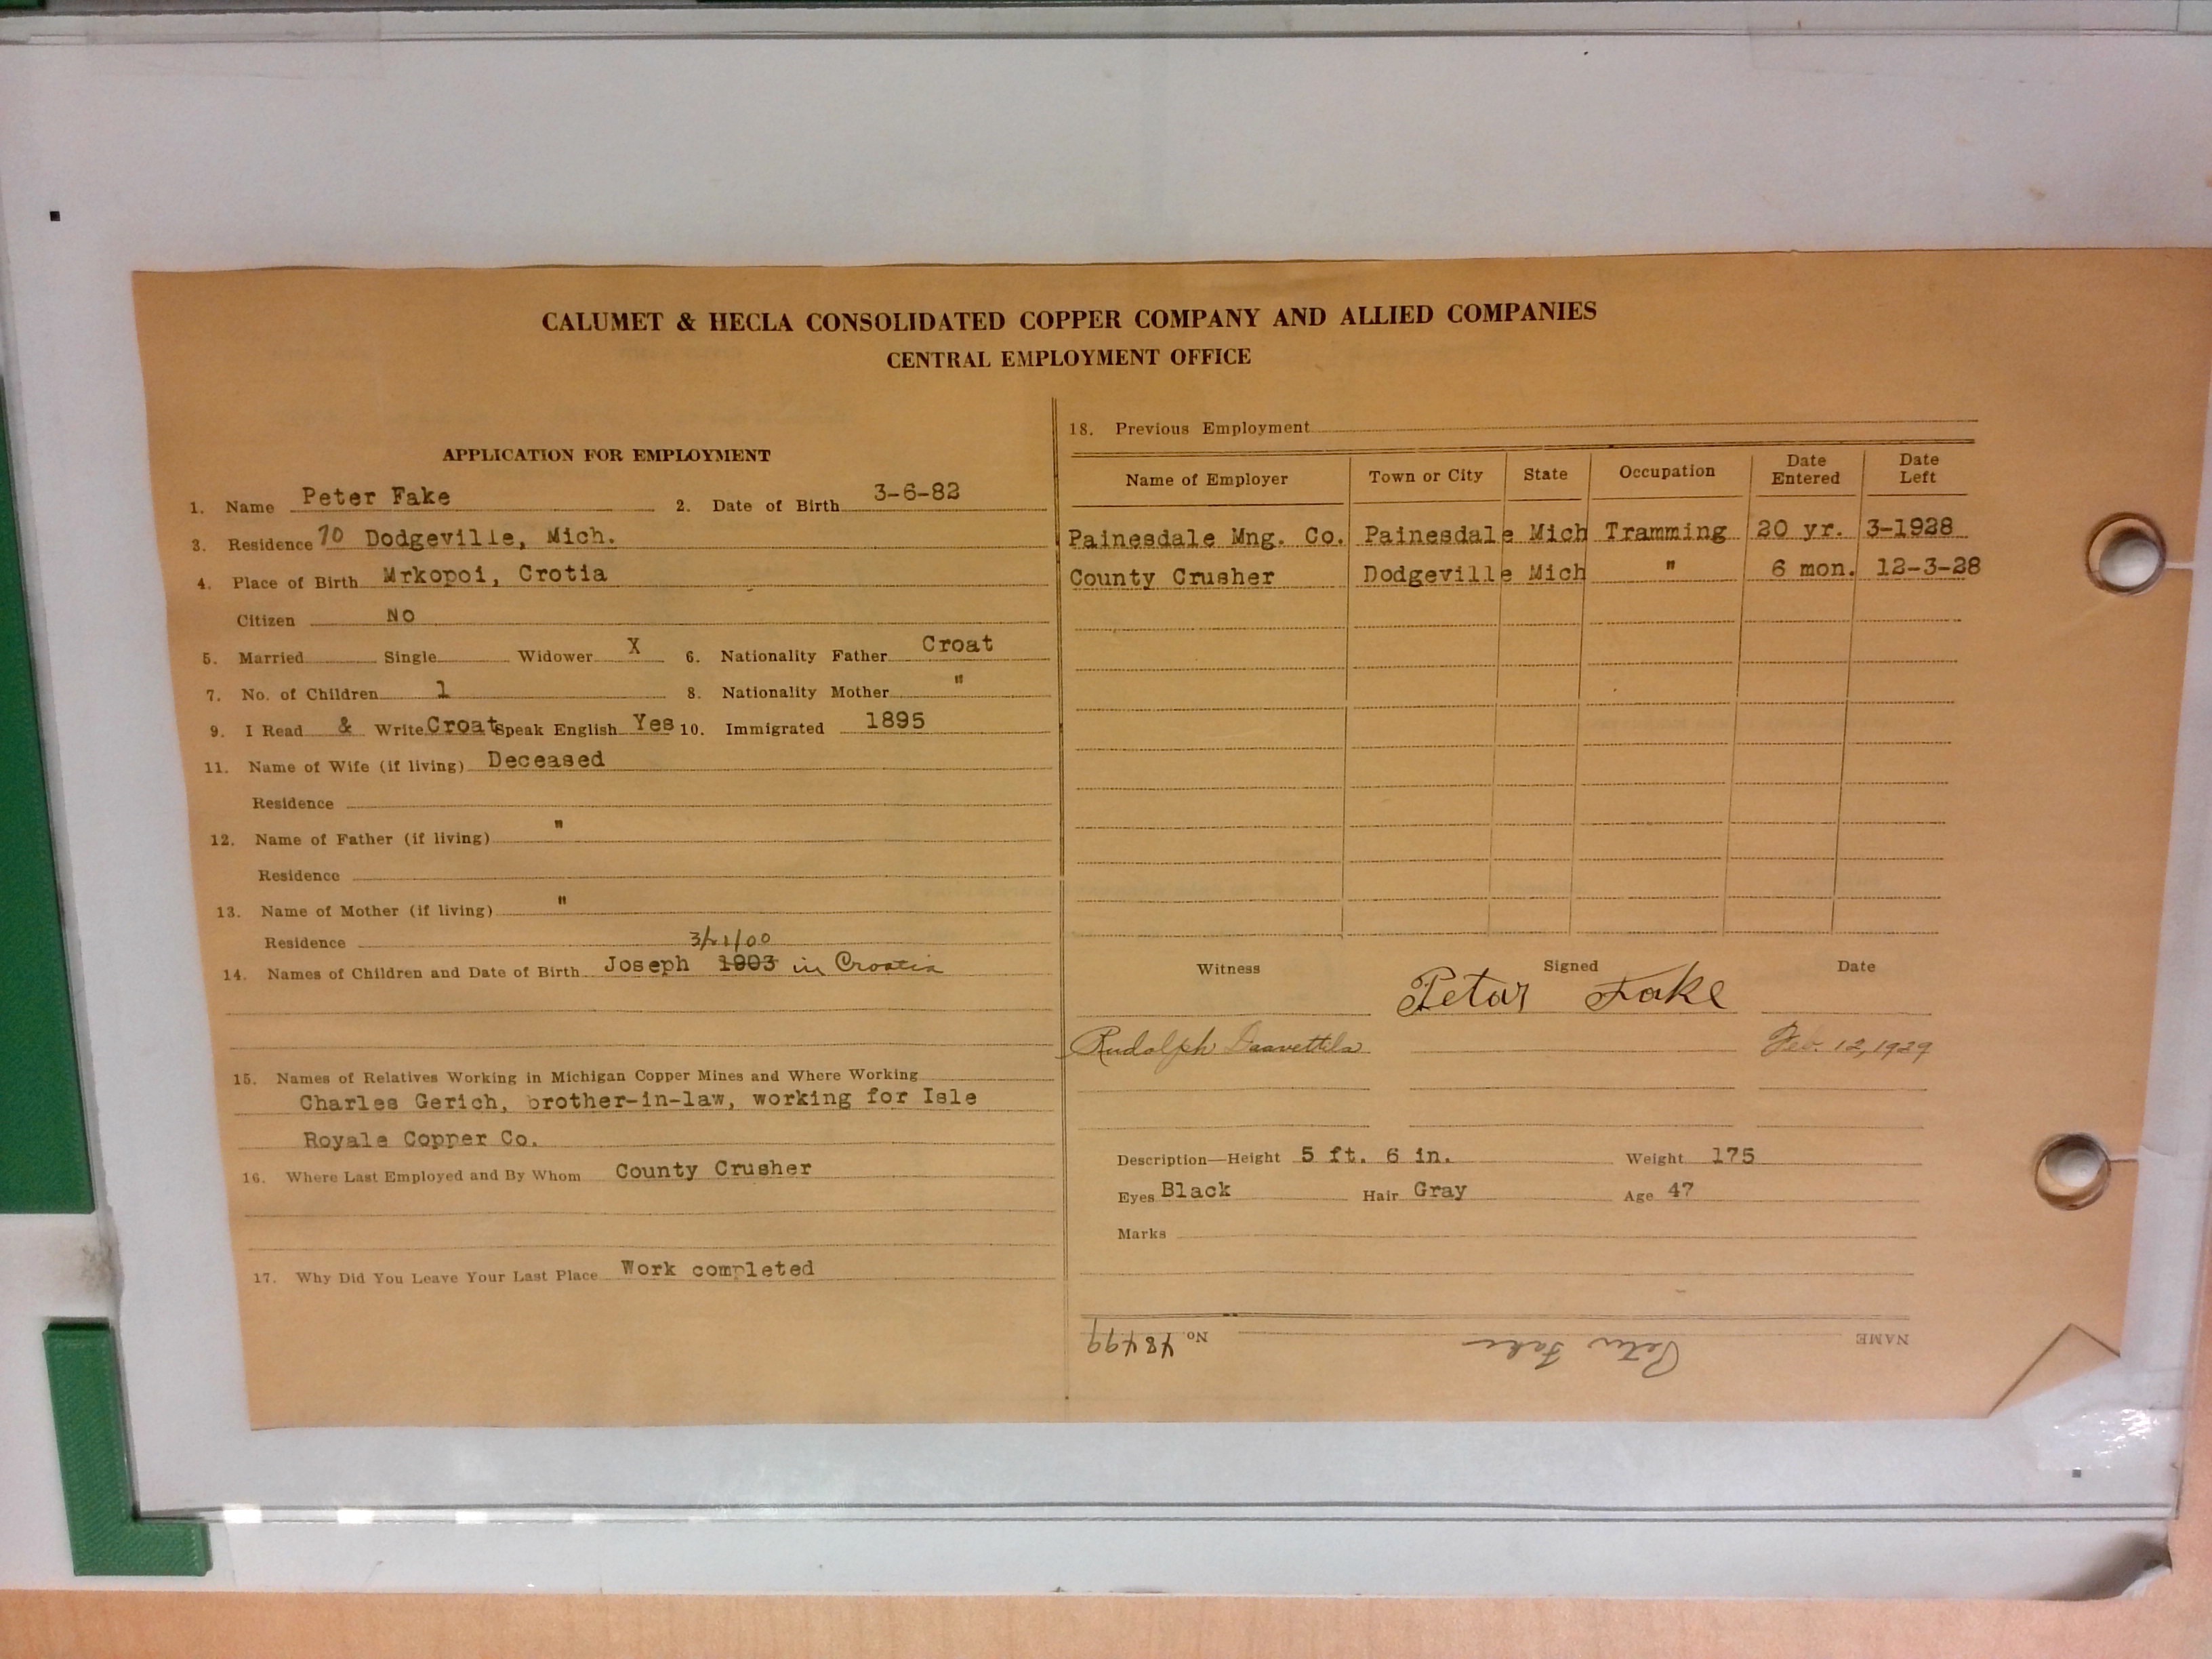 CALUMET & HECLA CONSOLIDATED COPPER COMPANY AND ALLIED COMPANIES
CENTRAL EMPLOYMENT OFFICE
APPLICATION FOR EMPLOYMENT
1. Name Peter Fake 2. Date of Birth 3-6-82
3. Residence 70 Dodgeville, Mich.
4. Place of Birth Mrkopoi, Crotia
Citizen No
5. Married Single Widower X 6. Nationality Father Croat
7. No. of Children 1 8. Nationality Mother "
9. I Read & Write Croat Speak English Yes 10. Immigrated 1895
11. Name of Wife (if living) Deceased
Residence
12. Name of Father (if living) "
Residence
13. Name of Mother (if living) "
Residence
3/21/00
14. Names of Children and Date of Birth Joseph 1903 in Croatia
15. Names of Relatives Working in Michigan Copper Mines and Where Working
Charles Gerich, brother-in-law, working for Isle
Royale Copper Co.
16. Where Last Employed and By Whom County Crusher
17. Why Did You Leave Your Last Place Work completed
18. Previous Employment
Name of Employer Town or City State Occupation Date Entered Date Left
Painesdale Mng. Co. Painesdale Mich Tramming 20 yr. 3-1928
County Crusher Dodgeville Mich " 6 mon. 12-3-28
Witness Signed Date
Petar Fake
Rudolph Daavettila Feb. 12, 1929
Description—Height 5 ft. 6 in. Weight 175
Eyes Black Hair Gray Age 47
Marks
NAME Peter Fake No. 48499